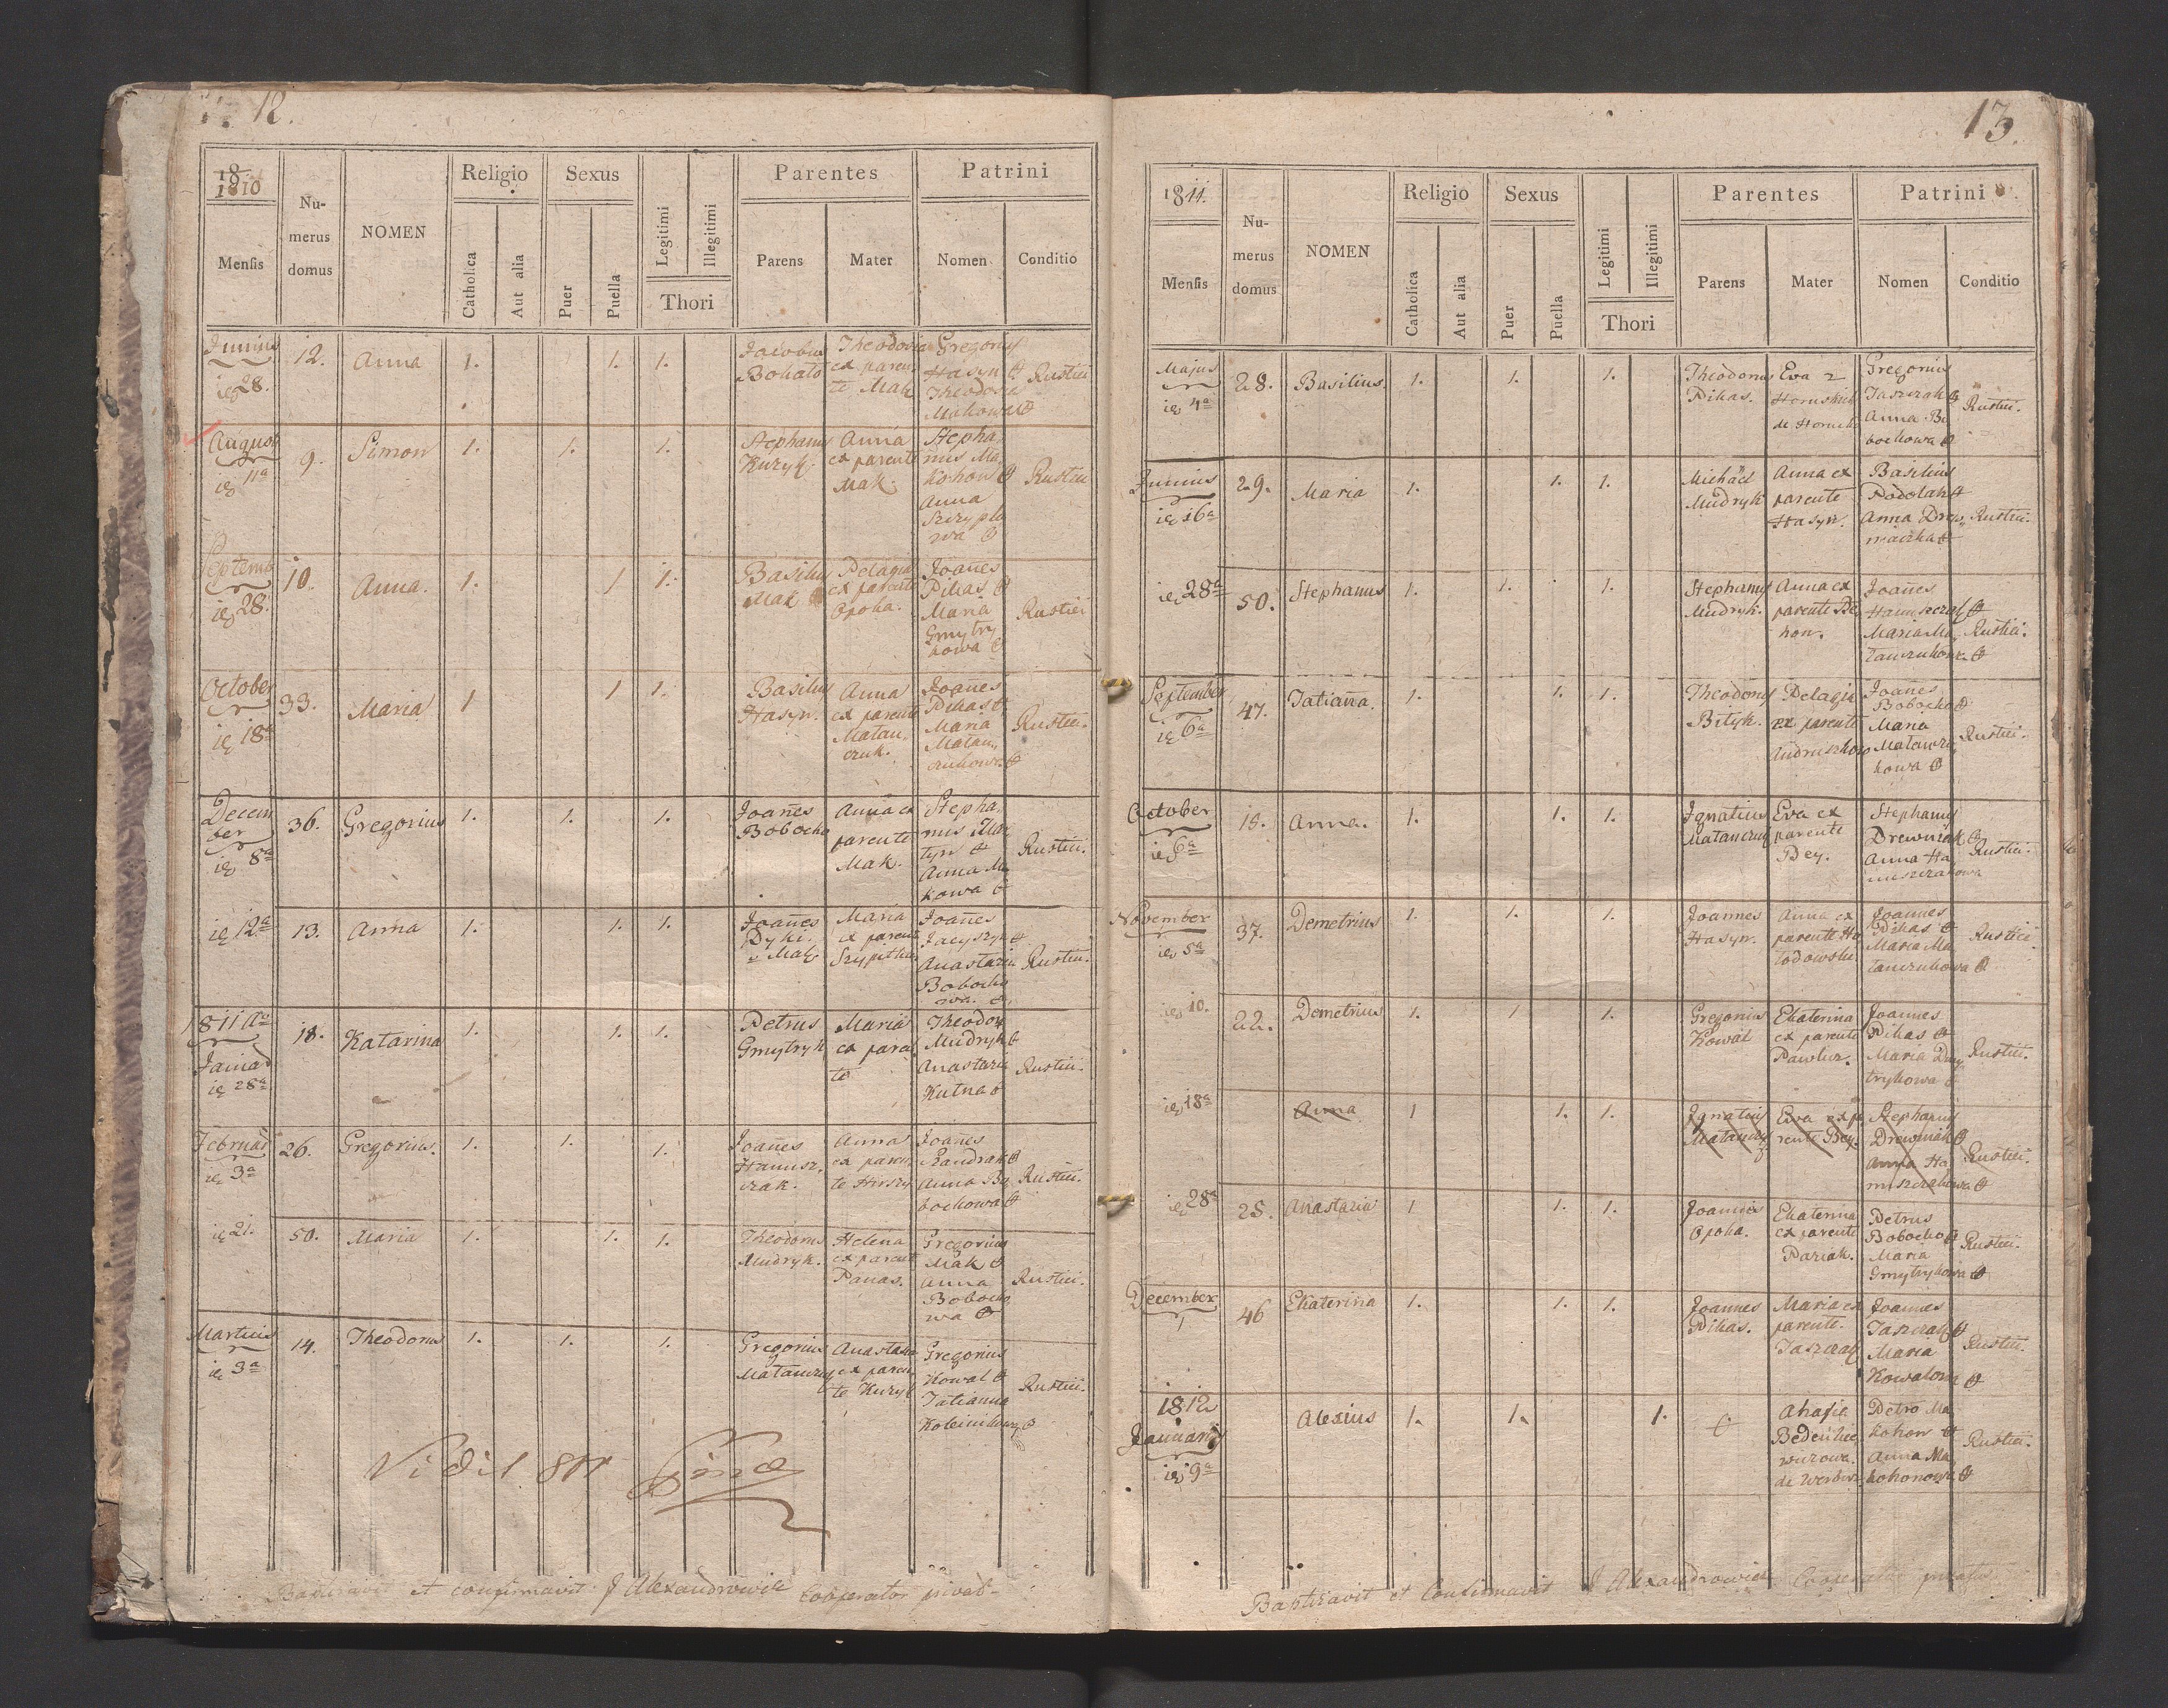 12.
18
1810
Mensis
Nu-
merus
domus
NOMEN
Religio
Catholica
Aut alia
Sexus
Puer
Puella
Legitimi
Illegitimi
Thori
Parentes
Parens
Mater
Patrini
Nomen
Conditio
Junius 28. 12. Anna 1. 1. 1.
Jacobus
Bohato
Theodosia
ex paren
te Mak
Gregorius
Hasyn
Theodosia
Makowa
Rustici
August 11a 9. Simon 1. 1. 1.
Stephanus
Kuzyk.
Anna
ex parente
Mak.
Stepha
nus Ma
kohon
Anna
Rustici
Septemb 28. 10. Anna. 1. 1 1.
Basilius
Mak
Pelagia
ex parente
Opoka.
Joañes
Pikas
Maria
Gmytry
kowa
Rustici
October 18a 33. Maria 1 1 1.
Basilius
Hasyn.
Anna
ex parente
Matau
czuk.
Joañes
Pikas
Maria
Matau
czukowa
Rustici.
Decem
ber
8a 36. Gregorius 1. 1. 1.
Joañes
Bobocho
Anna ex
parente
Mak.
Stepha
nus Mar
tyn
Anna Ma
kowa
Rustici.
12a 13. Anna 1. 1. 1.
Joañes
Dyki.
Mak
Maria
ex parente
Joañes
Jacyszyn
Anastazia
Bobocho
wa.
Rustici.
1811 Ao
28a 18. Katarina 1. 1. 1.
Petrus
Gmytryk
Maria
ex paren
te
Theodor
Mudryk
Anastazia
Kutna
Rustici.
Februar
3a 26. Gregorius. 1. 1. 1.
Joañes
Hanusz
czak.
Anna
ex paren
te
Joañes
Anna Bo
bochowa
Rustici.
21. 50. Maria 1. 1. 1.
Theodorus
Mudryk.
Helena
ex parente
Panas.
Gregorius
Mak
Anna
Bobocho
wa
Rustici.
Martius
3a 14. Theodorus 1. 1. 1.
Gregorius
Matauczuk
Anastasia
ex paren
te Kuzyk
Gregorius
Kowal
Tatianna
Rustici.
Vidit 811
Baptisavit et confirmavit J Alexandrowicz Cooperator privat
13.
1811.
Mensis
Nu-
merus
domus
NOMEN
Religio
Catholica
Aut alia
Sexus
Puer
Puella
Legitimi
Illegitimi
Thori
Parentes
Parens
Mater
Patrini
Nomen
Conditio
Majus
4a 28. Basilius 1. 1. 1.
Theodorus
Pikas.
Eva
Gregorius
Jaszczak
Anna Bo
bochowa
Rustici.
Junius
16a 29. Maria 1. 1. 1.
Michäel
Mudryk
Anna ex
parente
Hasyn.
Basilius
Podolak
Anna Drew
niaczka
Rustici.
28a 50. Stephanus 1. 1. 1.
Stephanus
Mudryk.
Anna ex
parente
Joañes
Hanuszczak
Maria Ma
tauczukowa
Rustici.
September
6a 47. Tatiana. 1. 1. 1.
Theodorus
Bityk.
Pelagia
ex parente
Joañes
Bobocho
Maria
Matauczu
kowa
Rustici.
October
6a 19. Anna. 1. 1. 1.
Ignatius
Matauczuk
Eva ex
parente
Bey.
Stephanus
Drewniak
Anna Ha
nuszczakowa
Rustici.
November
5a 37. Demetrius 1. 1. 1.
Joannes
Hasyn.
Anna ex
parente Ho
lodowski.
Joannes
Pikas
Maria Ma
tauczukowa
Rustici.
10. 22. Demetrius 1. 1 1.
Gregorius
Kowal
Ekaterina
ex parente
Pawluz.
Joannes
Pikas
Maria
trykowa
Rustici.
18a Anna 1 1. 1.
Ignatius
Matauczuk
Eva ex pa
rente Bey.
Stephanus
Drewniak
Anna Ha
nuszczakowa
Rustici.
28a 25. Anastazia 1 1. 1.
Joannes
Opoka.
Ekaterina
ex parente
Paziak.
Petrus
Bobocho
Maria
Gmytrykowa
Rustici.
December
1 46 Ekaterina 1. 1. 1.
Joannes
Pikas.
Maria ex
parente.
Jaszczak
Joannes
Jaszczak
Maria
Kowalowa
Rustici.
1812
Januarius
9a Alexius 1. 1. 1.
Ahafie
Petro Ma
kohon
Anna Ma
kohonowa
Rustici.
Baptisavit et Confirmavit J Alexandrowicz Cooperator privatus